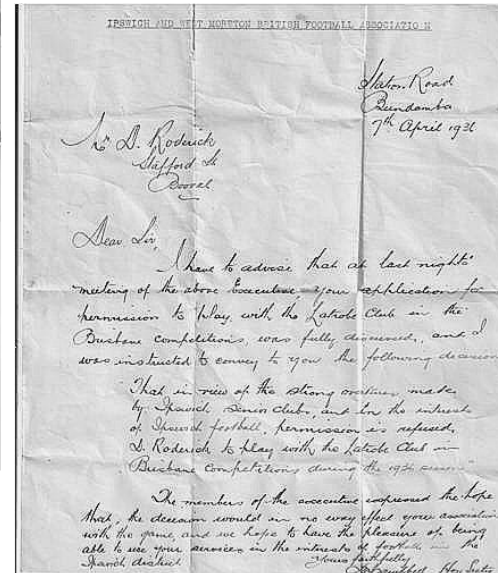 IPSWICH AND WEST MORETON BRITISH FOOTBALL ASSOCIATION
Station Road
Bundamba
7th April 1931
Mr D. Roderick
Stafford St
Booval
Dear Sir,
I have to advise that at last nights
meeting of the above Executive, your application for
permission to play with the Latrobe Club in the
Brisbane competitions, was fully discussed, and I
was instructed to convey to you the following decision
"That in view of the strong made
by Ipswich Senior clubs, and in the interests
of Ipswich football, permission is refused,
D. Roderick to play with the Latrobe Club in
Brisbane Competitions during the season"
The members of the executive expressed the hope
that, the decision would in no way effect your association
with the game, and we hope to have the pleasure of being
able to use your services in the interests of football in the
Ipswich district.
Yours faithfully
Hon Secty